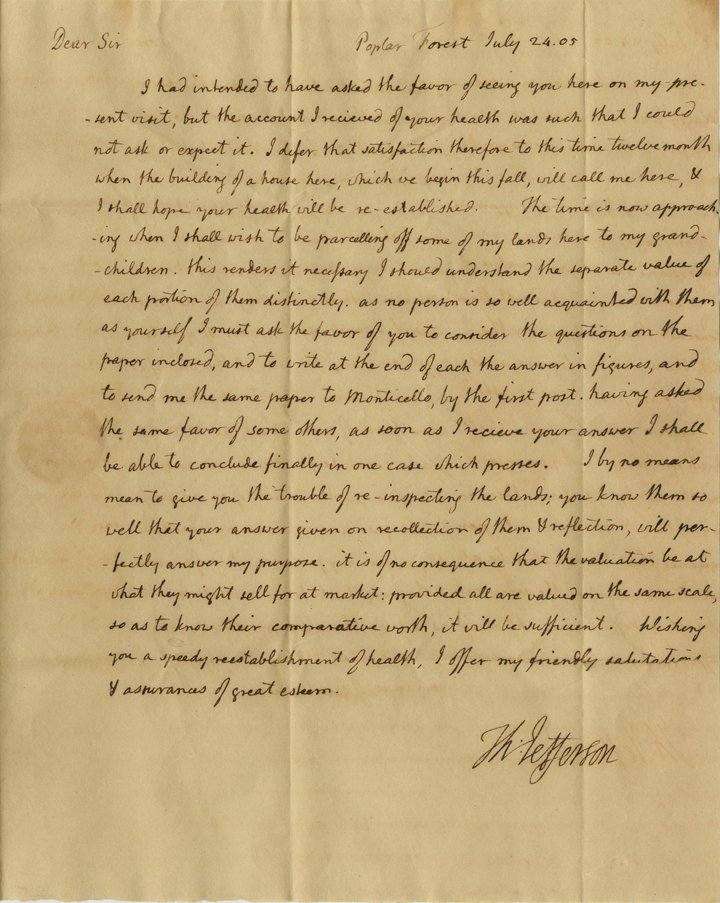 Dear Sir Poplar Forest July 24. 05
I had intended to have asked the favor of seeing you here on my pre-
-sent visit, but the account I recieved of your health was such that I could
not ask or expect it. I defer that satisfaction therefore to this time twelvemonth
when the building of a house here, which we begin this fall, will call me here, &
I shall hope your health will be re-established. The time is now approach-
-ing when I shall wish to be parcelling off some of my lands here to my grand-
-children. this renders it necessary I should understand the separate value of
each portion of them distinctly. as no person is so well acquainted with them
as yourself I must ask the favor of you to consider the questions on the
paper inclosed, and to write at the end of each the answer in figures, and
to send me the same paper to Monticello, by the first post. having asked
the same favor of some others, as soon as I recieve your answer I shall
be able to conclude finally in one case which presses. I by no means
mean to give you the trouble of re-inspecting the lands; you know them so
well that your answer given on recollection of them & reflection, will per-
-fectly answer my purpose. it is of no consequence that the valuation be at
what they might sell for at market: provided all are valued on the same scale,
so as to know their comparative worth, it will be sufficient. Wishing
you a speedy reestablishment of health, I offer my friendly salutations
& assurances of great esteem.
Th: Jefferson